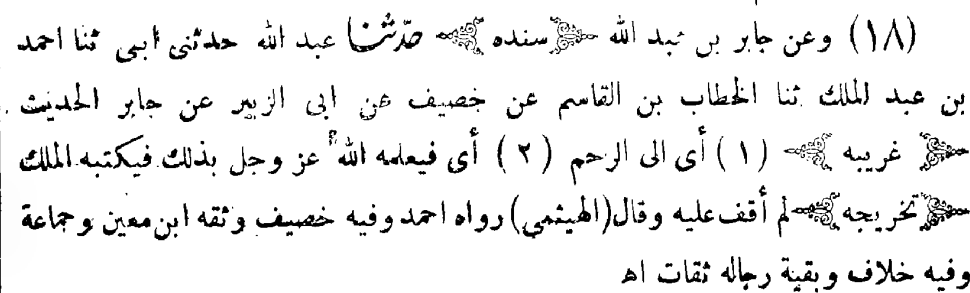 (١٨) وعن جابر بن عبد الله ﴿سنده﴾ حدثنا عبد الله حدثنى ابى ثنا احمد
بن عبد الملك ثنا الخطاب بن القاسم عن خصيف عن ابى الزبير عن جابر الحديث
﴿غريبه﴾ (١) أى الى الرحم (٢) أى فيعلمه الله عز وجل بذلك فيكتبه الملك
﴿تخريجه﴾ لم أقف عليه وقال (الهيثمي) رواه احمد وفيه خصيف وثقه ابن معين وجماعة
وفيه خلاف وبقية رجاله ثقات اهـ